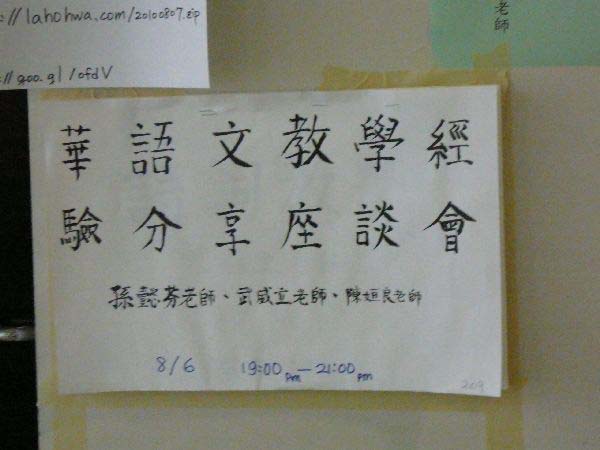 ://lahohwa.com/20100807.zip
://goo.gl/ofdV
老師
華語文教學經
驗分享座談會
孫懿芬老師、武威宜老師、陳姮良老師
8/6 19:00pm—21:00pm
209